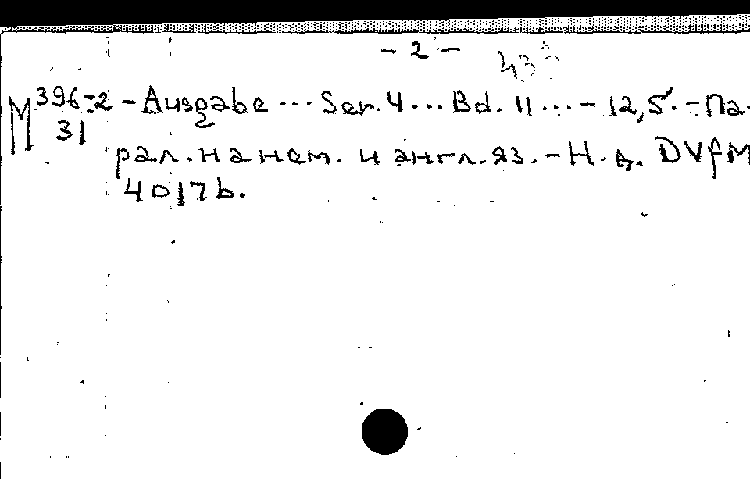 - 2 -
М 396-2 - Ausgabe ... Ser. 4 ... Bd. 11 ... - 12,5. - Па-
31
рал. на нем. и англ. яз. - Н. д. DVfM
4017b.